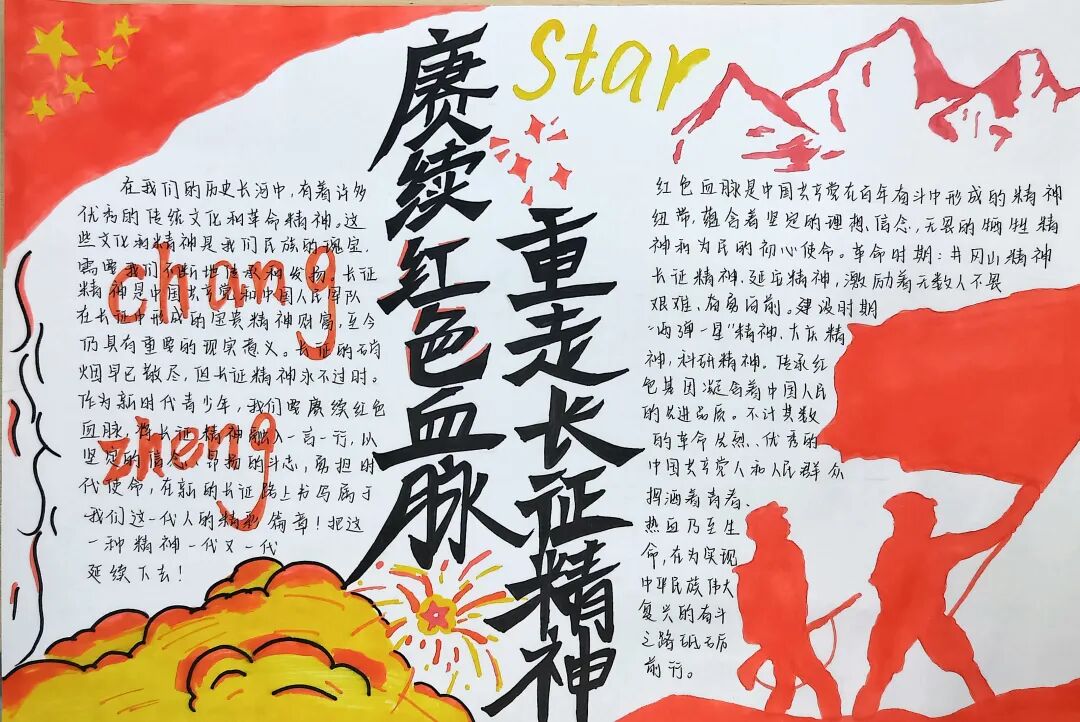 赓续红色血脉
重走长征精神
Star
chang
zheng
在我们的历史长河中，有着许多
优秀的传统文化和革命精神。这
些文化和精神是我们民族的瑰宝，
需要我们不断地传承和发扬。长征
精神是中国共产党和中国人民军队
在长征中形成的宝贵精神财富，至今
仍具有重要的现实意义。长征的硝
烟早已散尽，但长征精神永不过时。
作为新时代青少年，我们要赓续红色
血脉，将长征精神融入一言一行，以
坚定的信念、昂扬的斗志，勇担时
代使命，在新的长征路上书写属于
我们这一代人的精彩篇章！把这
一种精神一代又一代
延续下去！
红色血脉是中国共产党在百年奋斗中形成的精神
纽带，蕴含着坚定的理想、信念、无畏的牺牲精
神和为民的初心使命。革命时期：井冈山精神
长征精神、延安精神，激励着无数人不畏
艰难、奋勇向前。建设时期
"两弹一星"精神、大庆精
神，科研精神。传承红
色基因凝含着中国人民
的先进品质。不计其数
的革命先烈、优秀的
中国共产党人和人民群众
挥洒着青春、
热血乃至生
命，在为实现
中华民族伟大
复兴的奋斗
之路砥砺
前行。